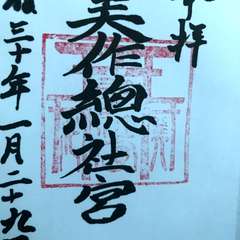 奉拝
美作總社宮
成三十年一月二十九日